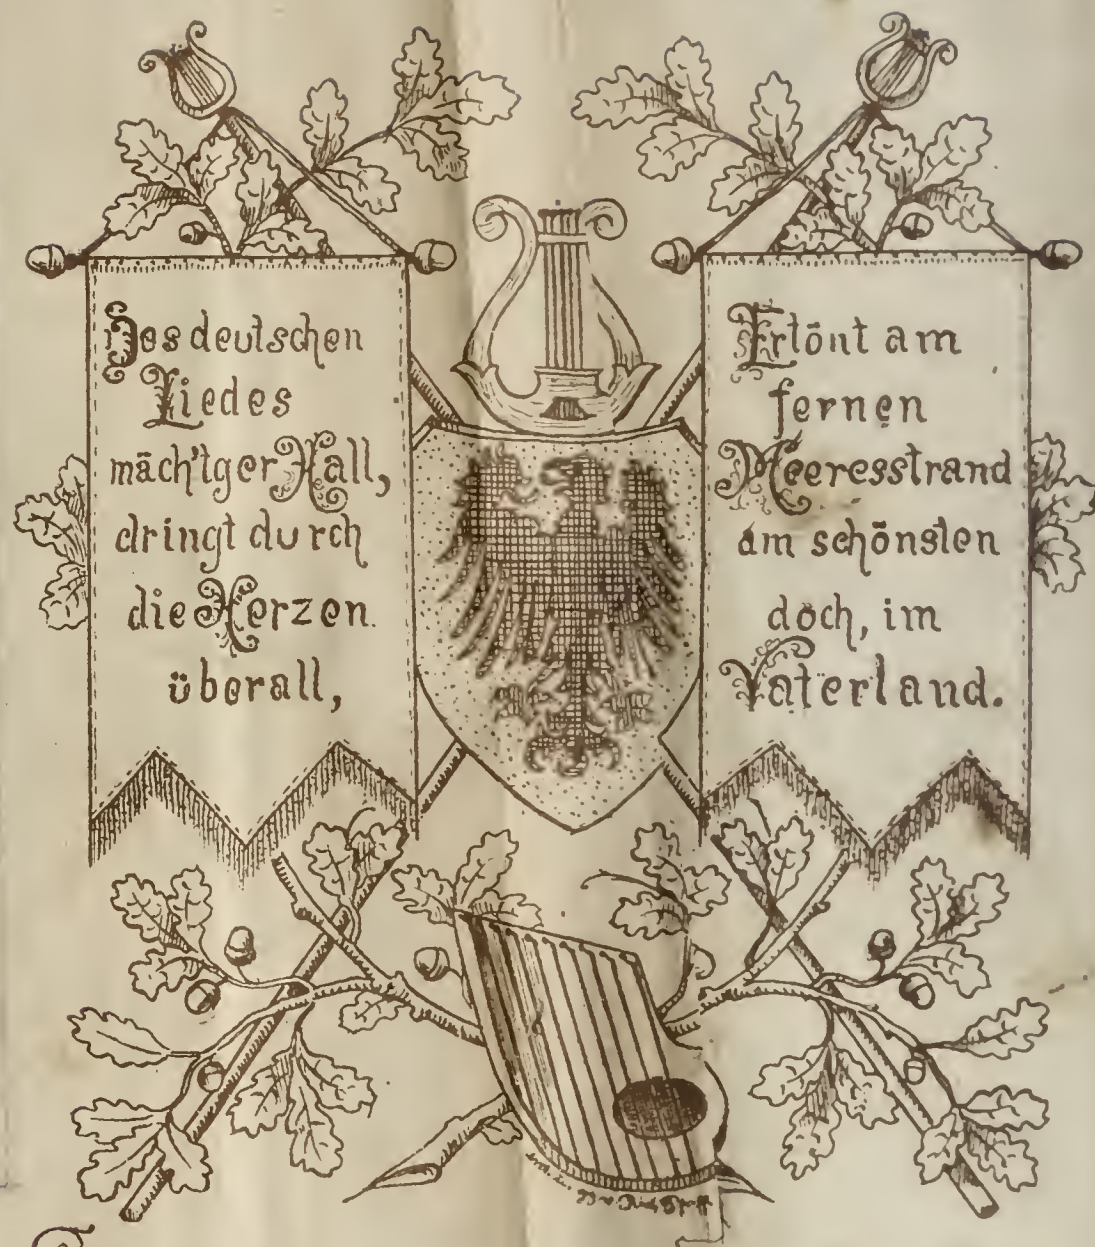 Des deutschen
Liedes
mäch'tger Hall,
dringt durch
die Herzen
überall,
Ertönt am
fernen
Meeresstrand
am schönsten
doch, im
Vaterland.